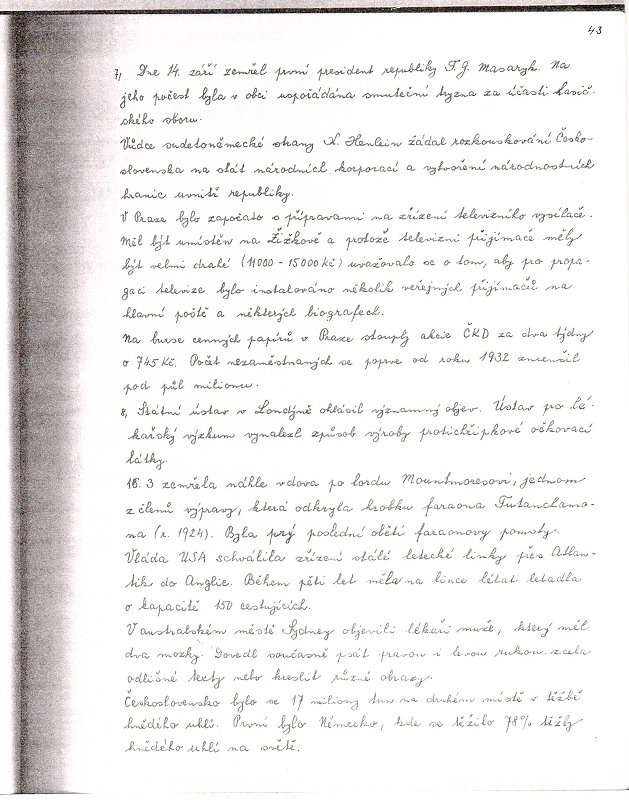 43
7, Dne 14. září zemřel první president republiky T. G. Masaryk. Na
jeho počest byla v obci uspořádána smuteční tryzna za účasti hasič-
ského sboru.
Vůdce sudetoněmecké strany K. Henlein žádal rozkouskování Česko-
slovenska na stát národních korporací a vytvoření národnostních
hranic uvnitř republiky.
V Praze bylo započato s přípravami na zřízení televizního vysílače.
Měl být umístěn na Žižkově a protože televizní přijímače měly
být velmi drahé (11000 - 15000 Kč) uvažovalo se o tom, aby pro propa-
gaci televize bylo instalováno několik veřejných přijímačů na
hlavní poště a některých biografech.
Na burse cenných papírů v Praze stouply akcie ČKD za dva týdny
o 745 Kč. Počet nezaměstnaných se poprve od roku 1932 zmenšil
pod půl milionu.
8, Státní ústav v Londýně ohlásil významný objev. Ústav pro lé-
kařský výzkum vynalezl způsob výroby protichřipkové očkovací
látky.
18. 3 zemřela náhle vdova po lordu Mountmoresovi, jednom
z členů výpravy, která odkryla hrobku faraona Tutanchamo-
na (r. 1924). Byla prý poslední obětí faraonovy pomsty.
Vláda USA schválila zřízení stálé letecké linky přes Atlan-
tik do Anglie. Během pěti let měla na lince létat letadla
o kapacitě 150 cestujících.
V australském městě Sydney objevili lékaři muže, který měl
dva mozky. Dovedl současně psát pravou i levou rukou zcela
odlišné texty nebo kreslit různé obrazy.
Československo bylo se 17 miliony tun na druhém místě v těžbě
hnědého uhlí. První bylo Německo, kde se těžilo 78% těžby
hnědého uhlí na světě.